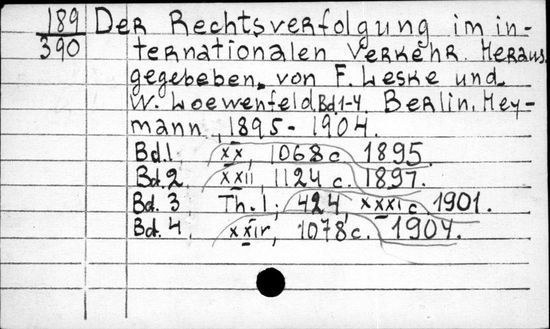 189 Der Rechtsverfolgung im in-
390 ternationalen Verkehr. Heraus.
gegeben. von F. Leske und
W. Loewenfeld Bd. 1-4. Berlin. Hey-
mann, 1895-1904.
Bd. 1. xx, 1068 c. 1895.
Bd. 2. xxii, 1124 c. 1897.
Bd. 3 Th. 1; 424, xxxi c. 1901.
Bd. 4. 1078 c. 1904.